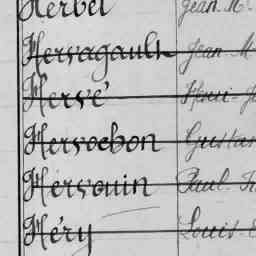 Herbel Jean M.
Hervagault Jean M
Hervé Henri J
Hervochon Gustav
Hervouin Paul Fr
Héry Louis E